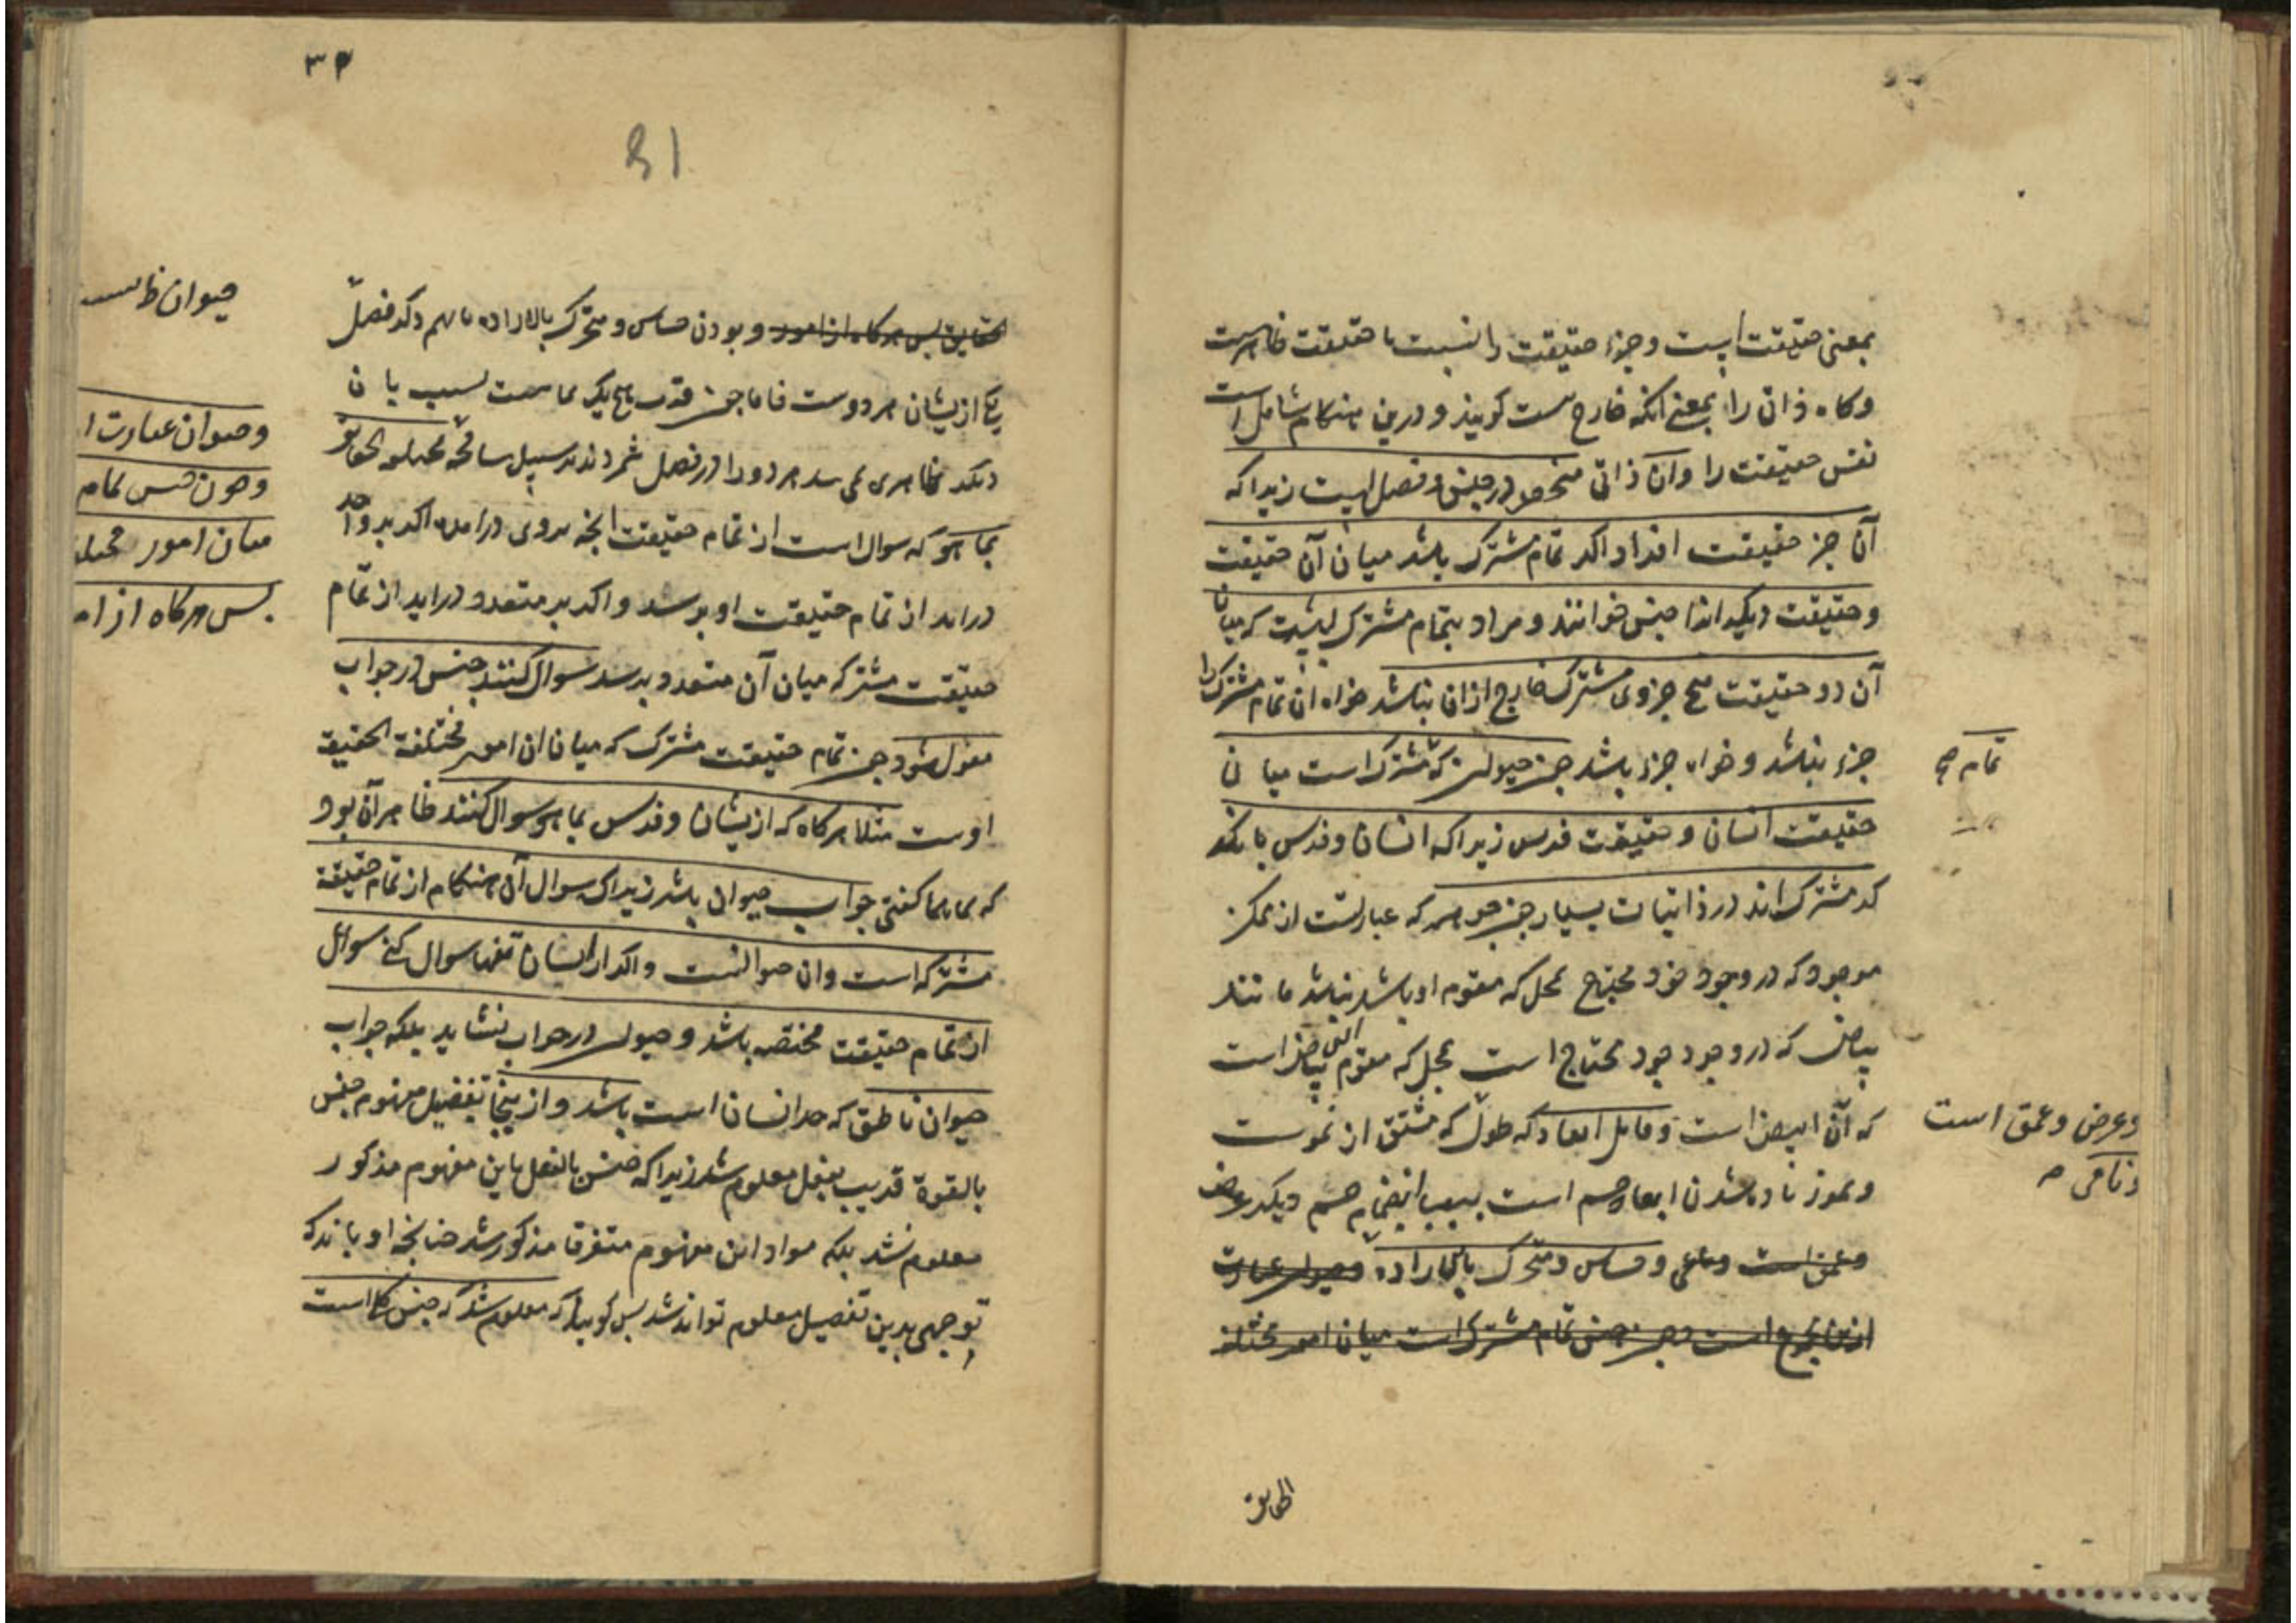 بمعنی حقیقت است و جزء حقیقت را نسبت با حقیقت ظاهرست
و کاه ذاتی را بمعنی انکه خارج نیست کویند و درین هنکام شامل است
نفس حقیقت را و آن ذاتی منحصر در جنس و فصل است زیرا که
آن جزء حقیقت افراد اکر تمام مشترک باشد میان آن حقیقت
و حقیقت دیکر انرا جنس خوانند و مراد بتمام مشترک اینست که میان
آن دو حقیقت هیچ جزوی مشترک خارج ازان نباشد خواه ان تمام مشترک را
جزء نباشد و خواه جزء باشد چون حیوان که مشترک است میان
حقیقت انسان و حقیقت فرس زیرا که انسان و فرس با یکد
یکر مشترک اند در ذاتیات بسیار چون جوهر که عبارتست از ممکن
موجود که در وجود خود محتاج بمحل که مقوم او باشد نباشد مانند
بیاض که در وجود خود محتاج است بمحل که مقوم بیاض است
که آن ابیض است و قابل ابعاد که طول که مشتق از نموست
و نمو زیاده شدن ابعاد جسم است بسبب انضمام جسم دیکر
و عمق است و نامی و حساس و متحرک بالاراده و حیوان عبارت
ازین مجموع است و چون جنس تمام مشترک است میان امور مختلفة
الحقایق
تمام
و عرض و عمق است
و نامی
۳۴
31
الحقایق پس هرکاه از امور و بودن حساس و متحرک بالاراده با هم دکر فصل
یکی ازیشان هر دوست
دیکر ظاهر نمی هر دو را در فصل شمردند بر سبیل
بما هو که سوال است از تمام حقیقت انچه بروی دراید اکر بر واحد
دراید از تمام حقیقت او پرسد و اکر بر متعدد دراید از تمام
حقیقت مشترکه میان آن متعدد پرسد سوال کنند جنس در جواب
مقول شود چون تمام حقیقت مشترک که میان ان امور مختلفة الحقیقة
اوست مثلا هرکاه که ازیشان و فرس بما هو سوال کنند ظاهر آن بود
که بما هما کفتی جواب حیوان باشد زیرا که سوال آن هنکام از تمام حقیقة
مشترکه است و ان حیوانست و اکر از انسان تنها سوال کنی سوال
از تمام حقیقت مختصه باشد و حیوان در جواب نشاید بلکه جواب
حیوان ناطق که حد انسان است باشد و از اینجا تفصیل مفهوم جنس
بالقوة قریب بفعل معلوم شد زیرا که جنس بالفعل باین مفهوم مذکور
معلوم نشد بلکه مواد این مفهوم متفرقا مذکور شد چنانچه او باندک
توجهی بدین تفصیل معلوم تواند شد پس کویا که معلوم شد که جنس کلی است
حیوان
و حیوان عبارت ا
و چون جنس تمام
میان امور
پس هرکاه از